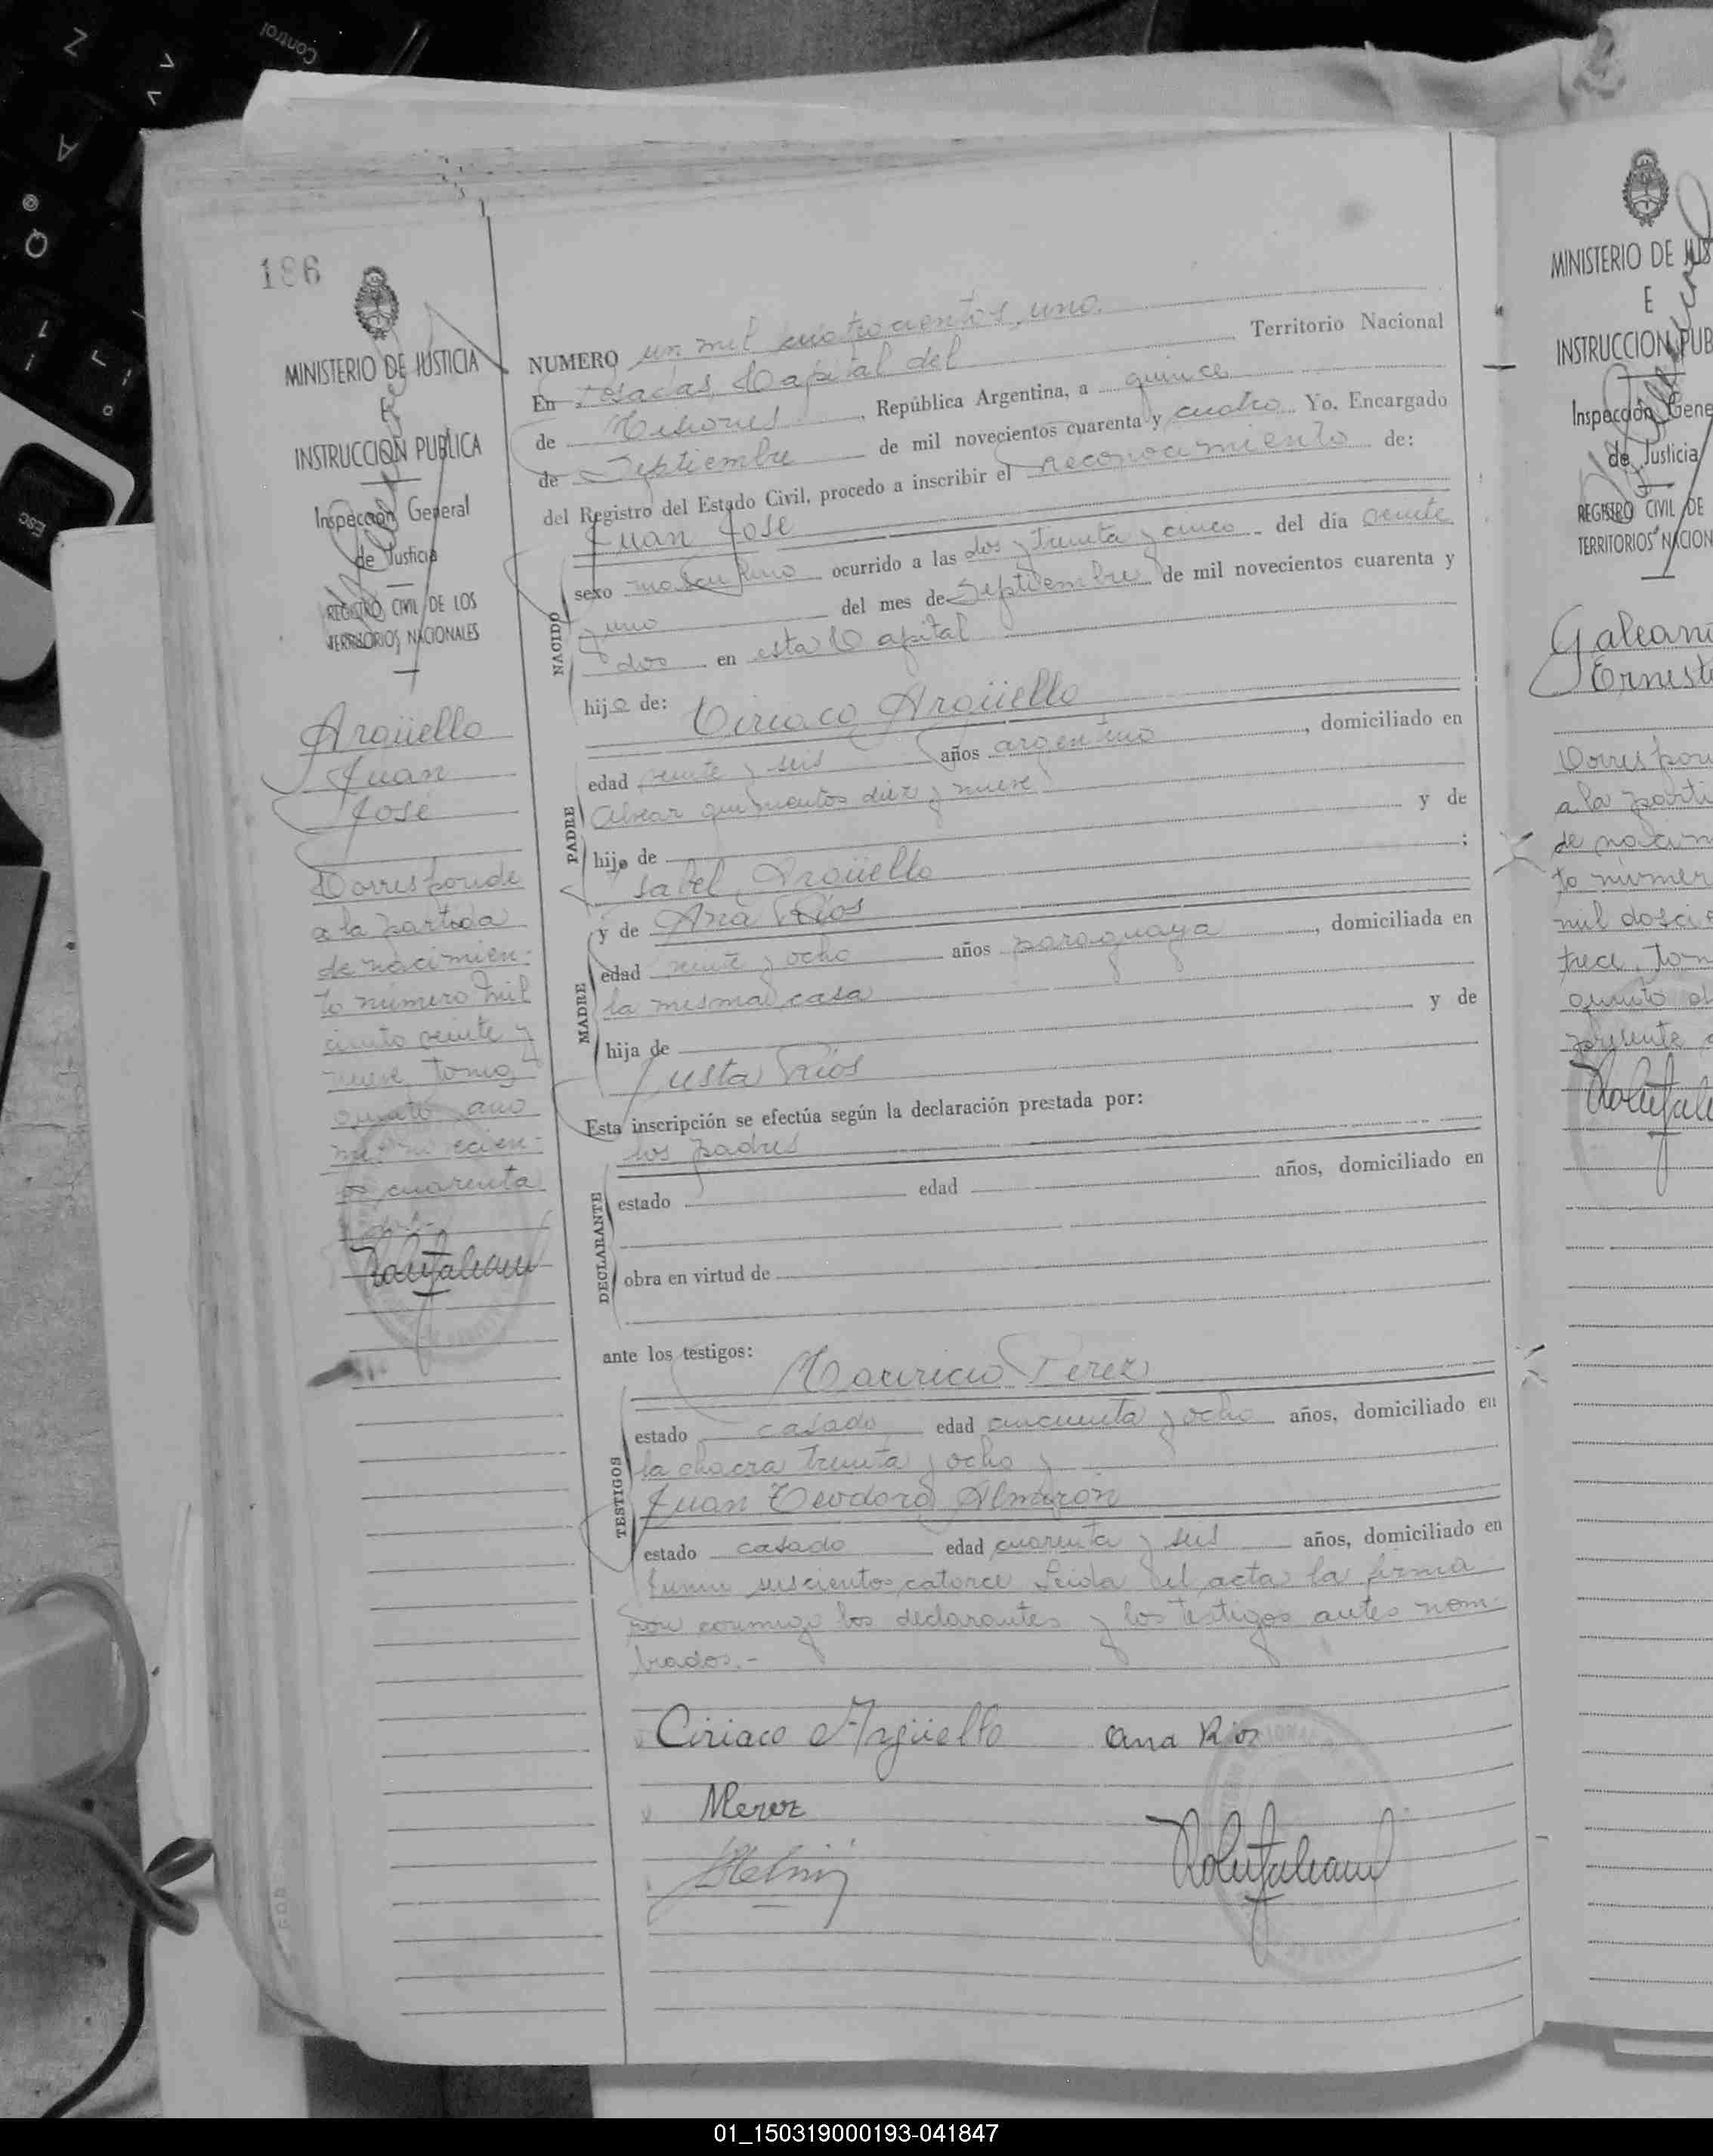 Control
Z
A
Q
Esc
186
MINISTERIO DE JUSTICIA
E
INSTRUCCION PUBLICA
Inspección General
de Justicia
REGISTRO CIVIL DE LOS
TERRITORIOS NACIONALES
Argüello
Juan
José
Corresponde
a la partida
de nacimien-
to número mil
ciento veinte y
nueve, tomo
quinto año
cuarenta
NUMERO un mil cuatrocientos uno.
En Posadas, Capital del Territorio Nacional
de Misiones, República Argentina, a quince
de Septiembre de mil novecientos cuarenta y cuatro Yo, Encargado
del Registro del Estado Civil, procedo a inscribir el reconocimiento de:
Juan José
NACIDO
sexo masculino ocurrido a las dos y treinta y cinco del día veinte
y uno del mes de Septiembre de mil novecientos cuarenta y
dos en esta Capital
hijo de: Ciriaco Argüello
PADRE
edad veinte y seis años argentino, domiciliado en
Alvear quinientos diez y nueve
hijo de y de
Isabel Argüello;
y de Ana Ríos
MADRE
edad veinte y ocho años paraguaya, domiciliada en
la misma casa
hija de y de
Justa Ríos
Esta inscripción se efectúa según la declaración prestada por:
los padres
DECLARANTE
estado edad años, domiciliado en
obra en virtud de
ante los testigos:
Mauricio Perez
TESTIGOS
estado casado edad cincuenta y ocho años, domiciliado en
la chacra treinta y ocho y
Juan Teodoro Almirón
estado casado edad cuarenta y seis años, domiciliado en
seiscientos catorce Leida el acta la firma
ron conmigo los declarantes y los testigos antes nom-
brados.-
Ciriaco Argüello Ana Rios
MPerez
MINISTERIO DE JUS
E
INSTRUCCION PUB
Inspección Gene
de Justicia
REGISTRO CIVIL DE
TERRITORIOS NACION
Galeano
Ernest
Corespon
a la parti
de nacim
to númer
mil dosci
trece, tom
quinto d
presente
01_150319000193-041847